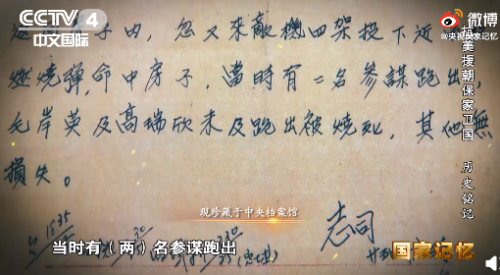 CCTV 4
中文国际
微博
@央视国家记忆
抗美援朝保家卫国 历史铭记
子内，忽又來敵機四架投下近
燃燒彈，命中房子，當時有二名參謀跑出，
毛岸英及高瑞欣未及跑出被燒死，其他無
損失。
现珍藏于中央档案馆
志司
当时有（两）名参谋跑出
国家记忆